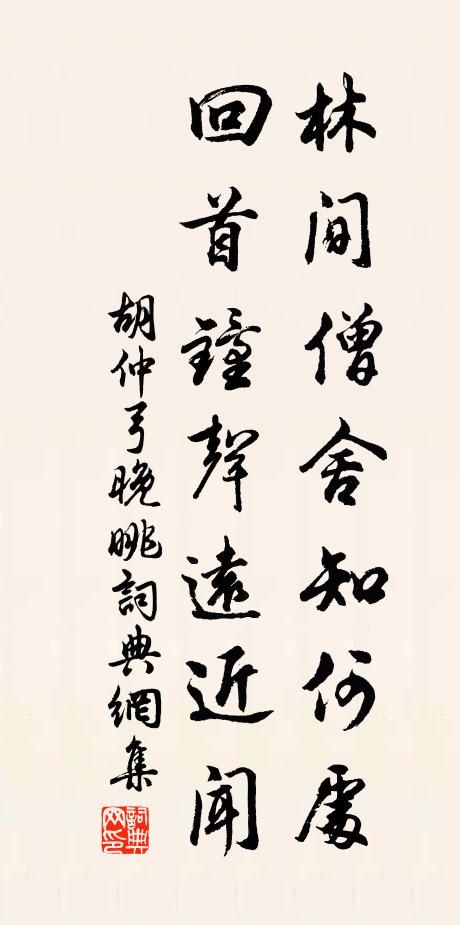 林間僧舍知何處
回首鐘聲遠近聞
胡仲弓晚眺詞典網集
詞典网印